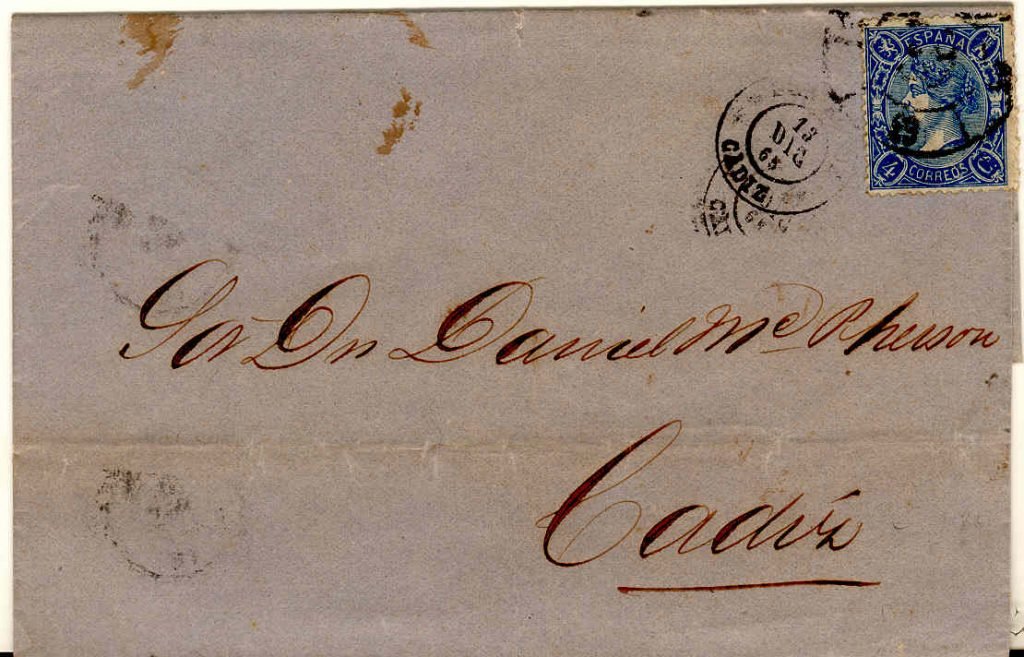 ESPAÑA
4 CORREOS Cs
13
DIC
65
CADIZ
Sor Dn Daniel Mc Pherson
Cadiz